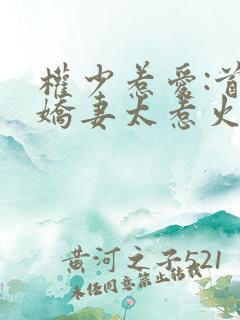 權少惹愛:首
嬌妻太惹火
黄河之子521
未任同意禁止轉載